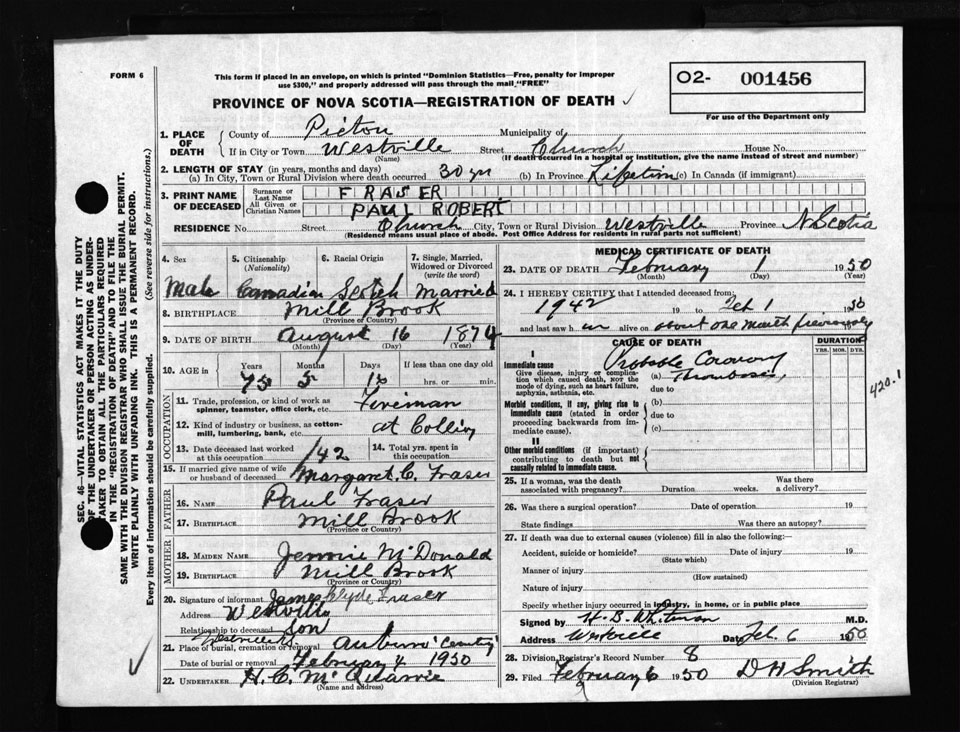 FORM 6
This form if placed in an envelope, on which is printed "Dominion Statistics—Free, penalty for improper
use $300," and properly addressed will pass through the mail "FREE"
PROVINCE OF NOVA SCOTIA—REGISTRATION OF DEATH
O2- 001456
For use of the Department only
1. PLACE OF DEATH County of Pictou Municipality of
If in City or Town Westville Street Church House No.
(Name) (If death occurred in a hospital or institution, give the name instead of street and number)
2. LENGTH OF STAY (in years, months and days)
(a) In City, Town or Rural Division where death occurred 30 yrs (b) In Province Lifetime (c) In Canada (if immigrant)
3. PRINT NAME OF DECEASED Surname or Last Name FRASER
All Given or Christian Names PAUL ROBERT
RESIDENCE No. Street Church City, Town or Rural Division Westville Province N. Scotia
(Residence means usual place of abode. Post Office Address for residents in rural parts not sufficient)
4. Sex 5. Citizenship (Nationality) 6. Racial Origin 7. Single, Married, Widowed or Divorced (write the word)
Male Canadian Scotch Married
8. BIRTHPLACE Mill Brook
(Province or Country)
9. DATE OF BIRTH August 16 1874
(Month) (Day) (Year)
10. AGE in Years Months Days If less than one day old
75 5 hrs. or min.
OCCUPATION
11. Trade, profession, or kind of work as spinner, teamster, office clerk, etc. Fireman
12. Kind of industry or business, as cotton-mill, lumbering, bank, etc. at Colliery
13. Date deceased last worked at this occupation 1942 14. Total yrs. spent in this occupation
15. If married give name of wife or husband of deceased Margaret C. Fraser
FATHER
16. NAME Paul Fraser
17. BIRTHPLACE Mill Brook
(Province or Country)
MOTHER
18. MAIDEN NAME Jennie McDonald
19. BIRTHPLACE Mill Brook
(Province or Country)
20. Signature of informant James Clyde Fraser
Address Westville
Relationship to deceased Son
21. Place of burial, cremation or removal Auburn Cemty
Date of burial or removal February 4 1950
22. UNDERTAKER H. C. McQuarrie
(Name and address)
MEDICAL CERTIFICATE OF DEATH
23. DATE OF DEATH February 1 1950
(Month) (Day) (Year)
24. I HEREBY CERTIFY that I attended deceased from:
1942 19 to Feb 1 1950
and last saw h im alive on about one month previously
CAUSE OF DEATH DURATION
YRS. MOS. DYS.
I
Immediate cause
Give disease, injury or complication which caused death, NOT the mode of dying, such as heart failure, asphyxia, asthenia, etc.
(a) Probable Coronary Thrombosis
due to
420.1
Morbid conditions, if any, giving rise to immediate cause (stated in order proceeding backwards from immediate cause).
(b)
due to
(c)
II
Other morbid conditions (if important) contributing to death but not causally related to immediate cause.
25. If a woman, was the death associated with pregnancy? Duration weeks. Was there a delivery?
26. Was there a surgical operation? Date of operation 19
State findings Was there an autopsy?
27. If death was due to external causes (violence) fill in also the following:
Accident, suicide or homicide? Date of injury 19
(State which)
Manner of injury
(How sustained)
Nature of injury
Specify whether injury occurred in industry, in home, or in public place
Signed by H. B. Whitman M.D.
Address Westville Date Feb. 6 1950
28. Division Registrar's Record Number 8
29. Filed February 6 1950 D H Smith
(Division Registrar)
SEC. 46—VITAL STATISTICS ACT MAKES IT THE DUTY
OF THE UNDERTAKER OR PERSON ACTING AS UNDER-
TAKER TO OBTAIN ALL THE PARTICULARS REQUIRED
IN THE "REGISTRATION OF DEATH" AND TO FILE THE
SAME WITH THE DIVISION REGISTRAR WHO SHALL ISSUE THE BURIAL PERMIT.
WRITE PLAINLY WITH UNFADING INK. THIS IS A PERMANENT RECORD.
Every item of information should be carefully supplied. (See reverse side for instructions.)